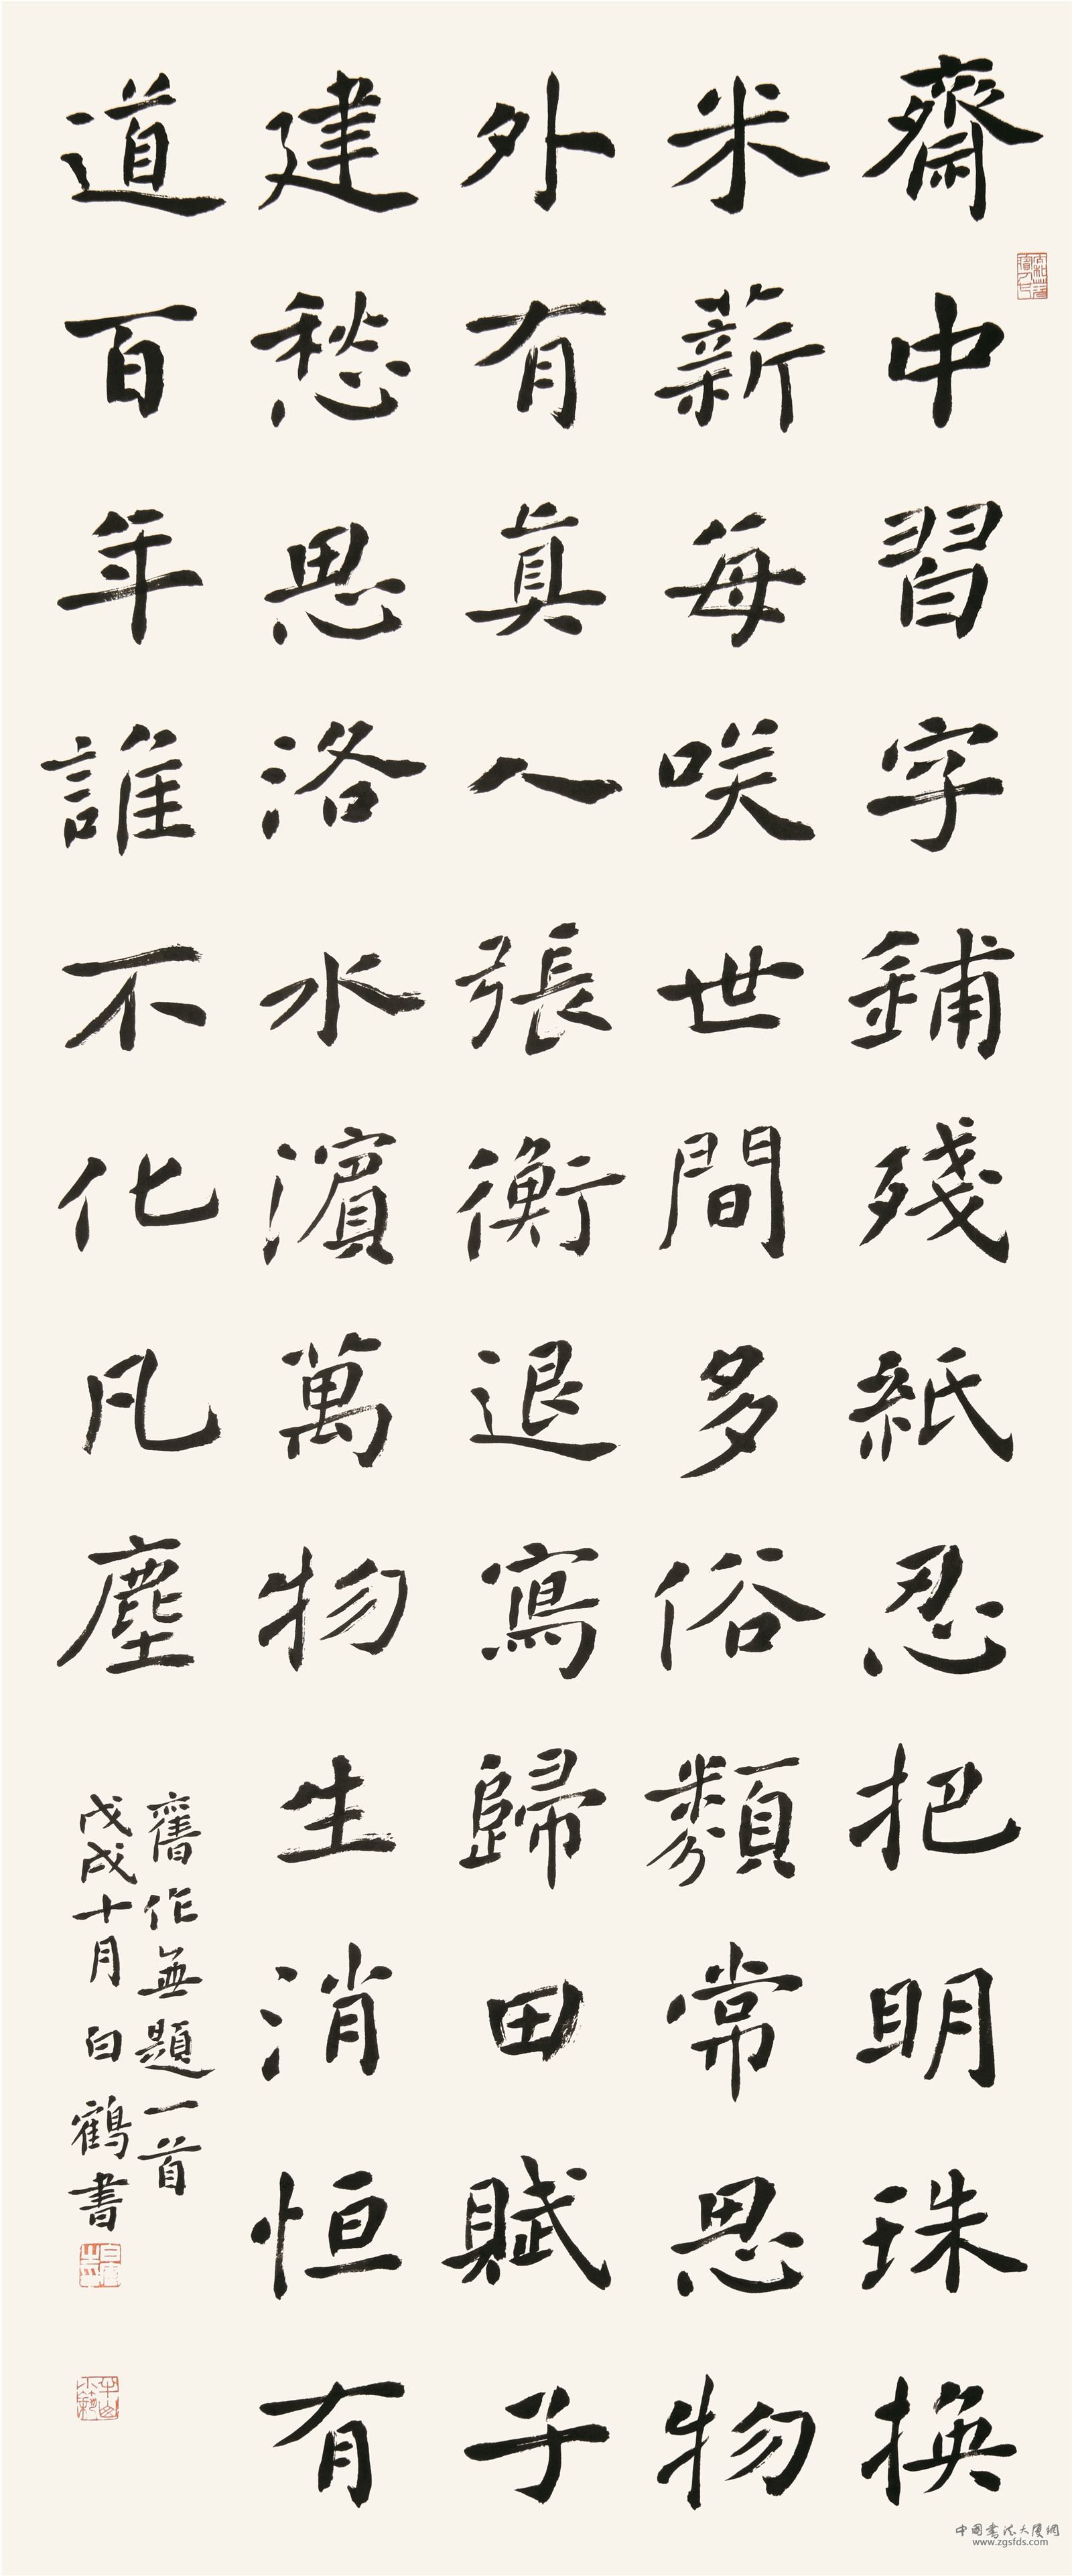 齋中習字鋪殘紙忍把明珠換
米薪每咲世間多俗類常思物
外有真人張衡退寫歸田賦子
建愁思洛水濱萬物生消恒有
道百年誰不化凡塵
舊作無題一首
戊戌十月白鶴書
中国书法大厦网
www.zgsfds.com